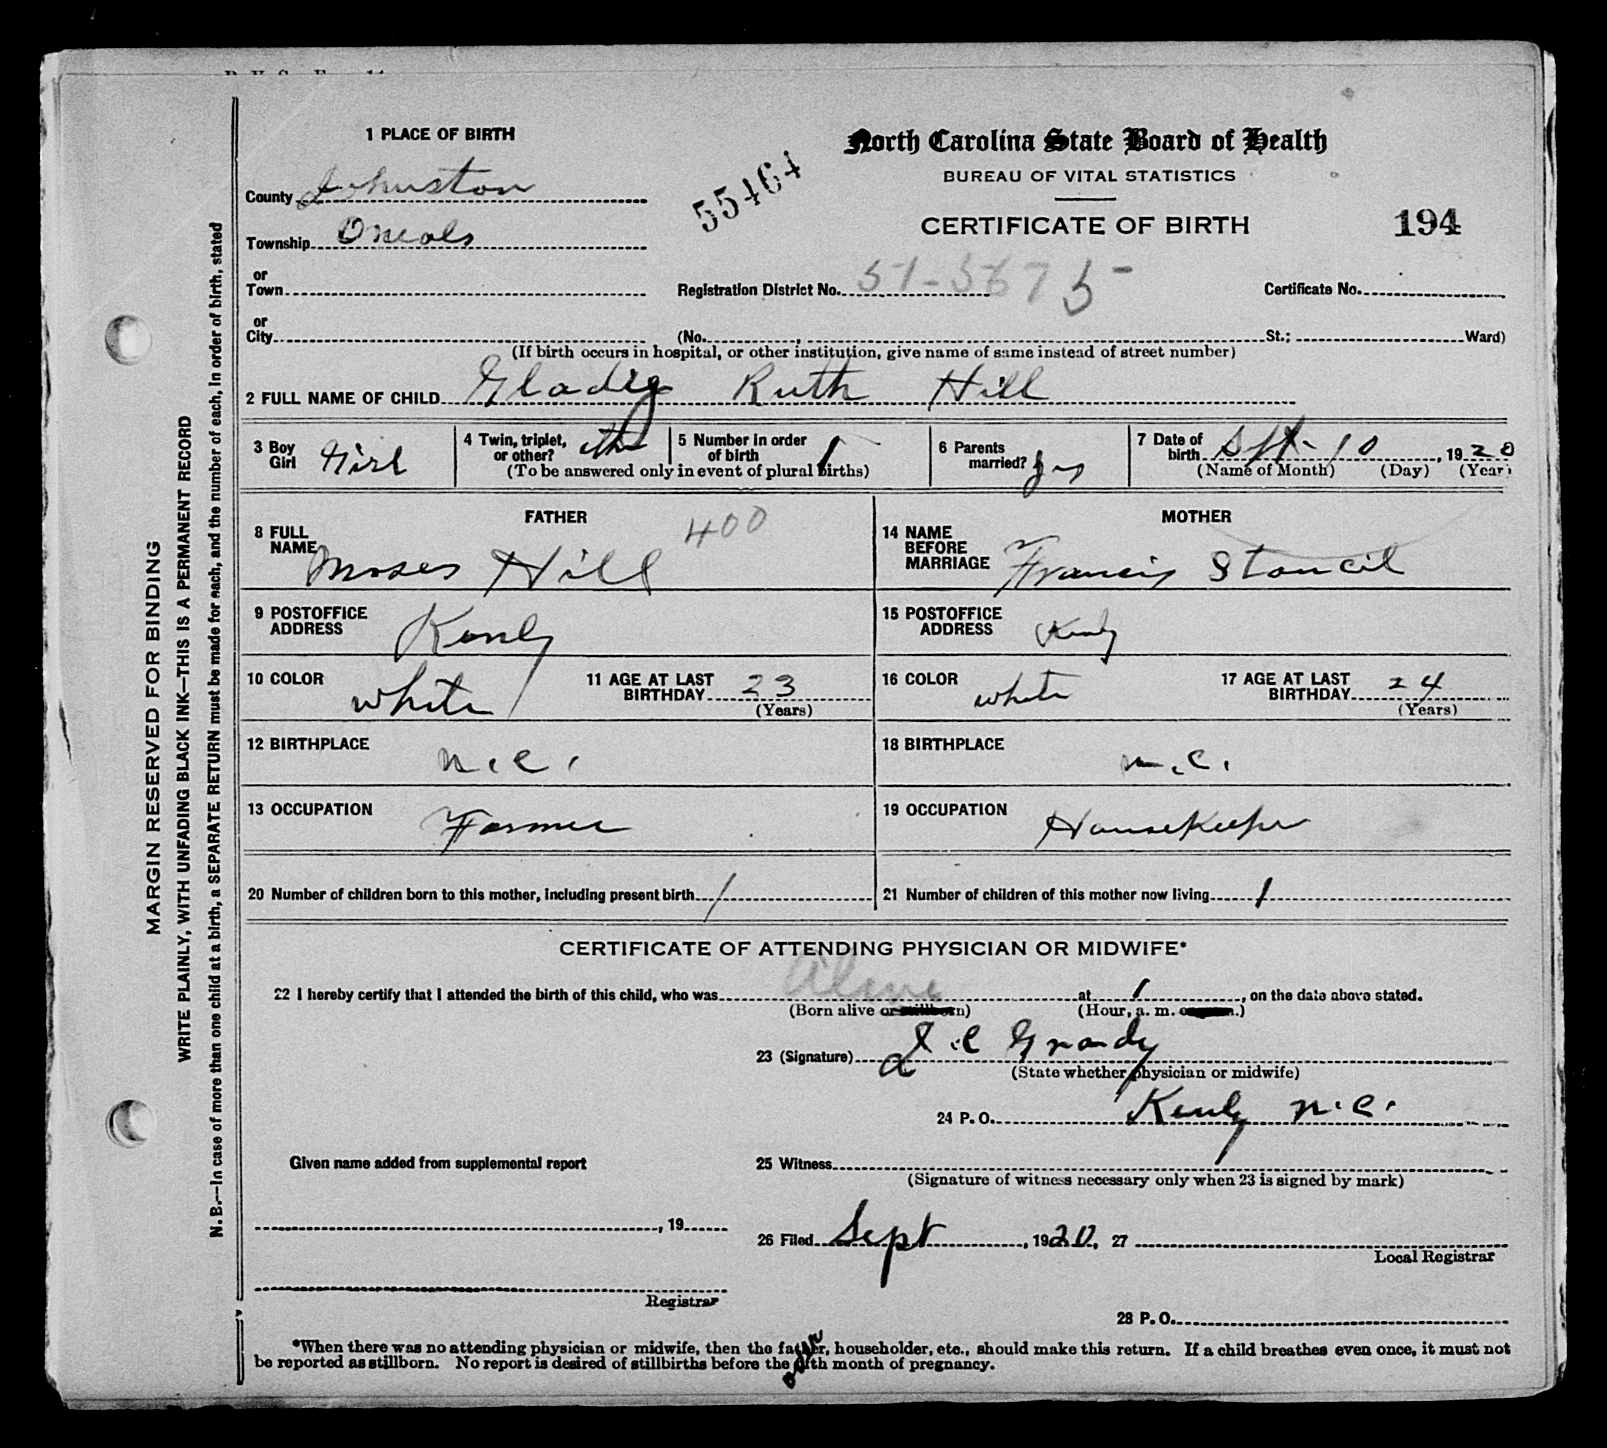 1 PLACE OF BIRTH
North Carolina State Board of Health
BUREAU OF VITAL STATISTICS
CERTIFICATE OF BIRTH
55464
194
County Johnston
Township Oneals
or
Town
Registration District No. 51-5675
Certificate No.
or
City (No. , St.; Ward)
(If birth occurs in hospital, or other institution, give name of same instead of street number)
2 FULL NAME OF CHILD Gladis Ruth Hill
3 Boy Girl Girl
4 Twin, triplet, or other?
5 Number in order of birth 1
(To be answered only in event of plural births)
6 Parents married? yes
7 Date of birth Sept - 10, 1920
(Name of Month) (Day) (Year)
FATHER
400
8 FULL NAME Moses Hill
9 POSTOFFICE ADDRESS Kenly
10 COLOR white
11 AGE AT LAST BIRTHDAY 23
(Years)
12 BIRTHPLACE N.C.
13 OCCUPATION Farmer
MOTHER
14 NAME BEFORE MARRIAGE Francis Stancil
15 POSTOFFICE ADDRESS Kenly
16 COLOR white
17 AGE AT LAST BIRTHDAY 24
(Years)
18 BIRTHPLACE N.C.
19 OCCUPATION Housekeeper
20 Number of children born to this mother, including present birth 1
21 Number of children of this mother now living 1
CERTIFICATE OF ATTENDING PHYSICIAN OR MIDWIFE*
22 I hereby certify that I attended the birth of this child, who was Alive at 1, on the date above stated.
(Born alive or stillborn) (Hour, a. m. or p. m.)
23 (Signature) J. C. Grady
(State whether physician or midwife)
24 P. O. Kenly N.C.
Given name added from supplemental report
25 Witness
(Signature of witness necessary only when 23 is signed by mark)
, 19
26 Filed Sept, 1920, 27
Local Registrar
Registrar
28 P. O.
*When there was no attending physician or midwife, then the father, householder, etc., should make this return. If a child breathes even once, it must not
be reported as stillborn. No report is desired of stillbirths before the fifth month of pregnancy.
over
MARGIN RESERVED FOR BINDING
WRITE PLAINLY, WITH UNFADING BLACK INK—THIS IS A PERMANENT RECORD
N. B.—In case of more than one child at a birth, a SEPARATE RETURN must be made for each, and the number of each, in order of birth, stated